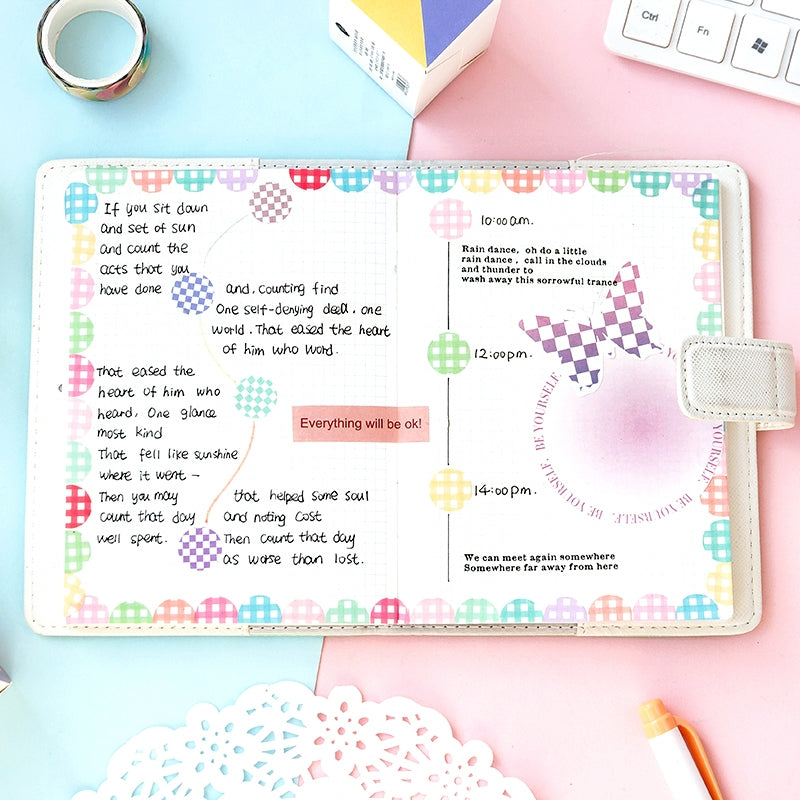 If you sit down
and set of sun
and count the
acts that you
have done
and, counting find
One self-denying deed, one
world. That eased the heart
of him who word.
That eased the
heart of him who
heard, One glance
most kind
That fell like sunshine
where it went —
Then you may
count that day
well spent.
that helped some soul
and noting cost
Then count that day
as worse than lost.
Everything will be ok!
10:00am.
Rain dance, oh do a little
rain dance, call in the clouds
and thunder to
wash away this sorrowful trance
12:00pm.
BE YOURSELF. BE YOURSELF. BE YOURSELF.
14:00pm.
We can meet again somewhere
Somewhere far away from here
Ctrl
Fn